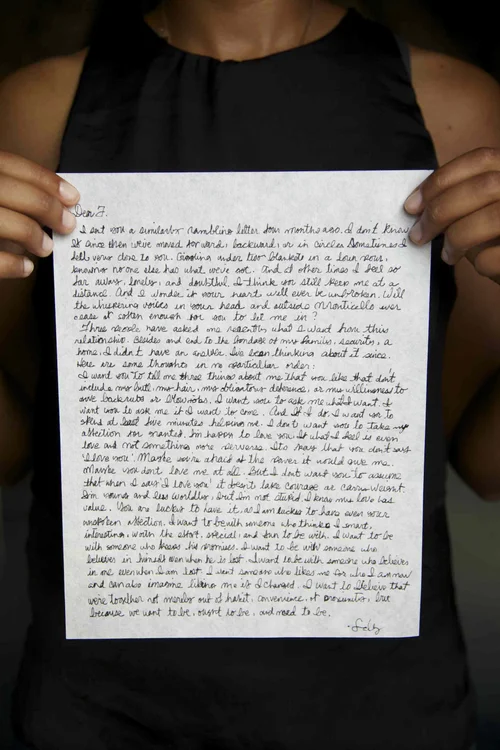 Dear J.
I sent you a similarly rambling letter four months ago. I don't know
if since then we've moved forward, backward, or in circles. Sometimes I
feel very close to you. Giggling under two blankets in a
knowing no one else has what we've got. And at other times I feel so
far away, lonely, and doubtful. I think you still keep me at a
distance. And I wonder if your heart will ever be unbroken. Will
the whispering voices in your head and outside Monticello ever
cease or soften enough for you to let me in?
Three people have asked me recently what I want from this
relationship. Besides and end to the bondage of my family, security, a
home, I didn't have an answer. I've been thinking about it since.
Here are some thoughts in no particular order:
I want you to tell me three things about me that you like that don't
include my butt, my hair, my obligatory deference, or my willingness to
give backrubs or blowjobs. I want you to ask me what I want. I
want you to ask me if I want to come. And if I do, I want you to
at least five minutes helping me. I don't want you to take my
affection for granted. I'm happy to love you if what I feel is even
love and not something more perverse. It's okay that you don't say
'I love you'. Maybe you're afraid of the power it would give me.
Maybe you don't love me at all. But I don't want you to assume
that when I say 'I love you' it doesn't take courage or carry weight.
I'm young and less worldly, but I'm not stupid. I know my love has
value. You are lucky to have it, as I am lucky to have even your
unspoken affection. I want to be with someone who thinks I smart,
interesting, worth the effort, special, and fun to be with. I want to be
with someone who keeps his promises. I want to be with someone who
believes in himself even when he is lost. I want to be with someone who believes
in me even when I am lost. I want someone who likes me for who I am now
and can also imagine liking me if I changed. I want to believe that
we're together not merely out of habit, convenience, or propinquity, but
because we want to be, ought to be, and need to be.